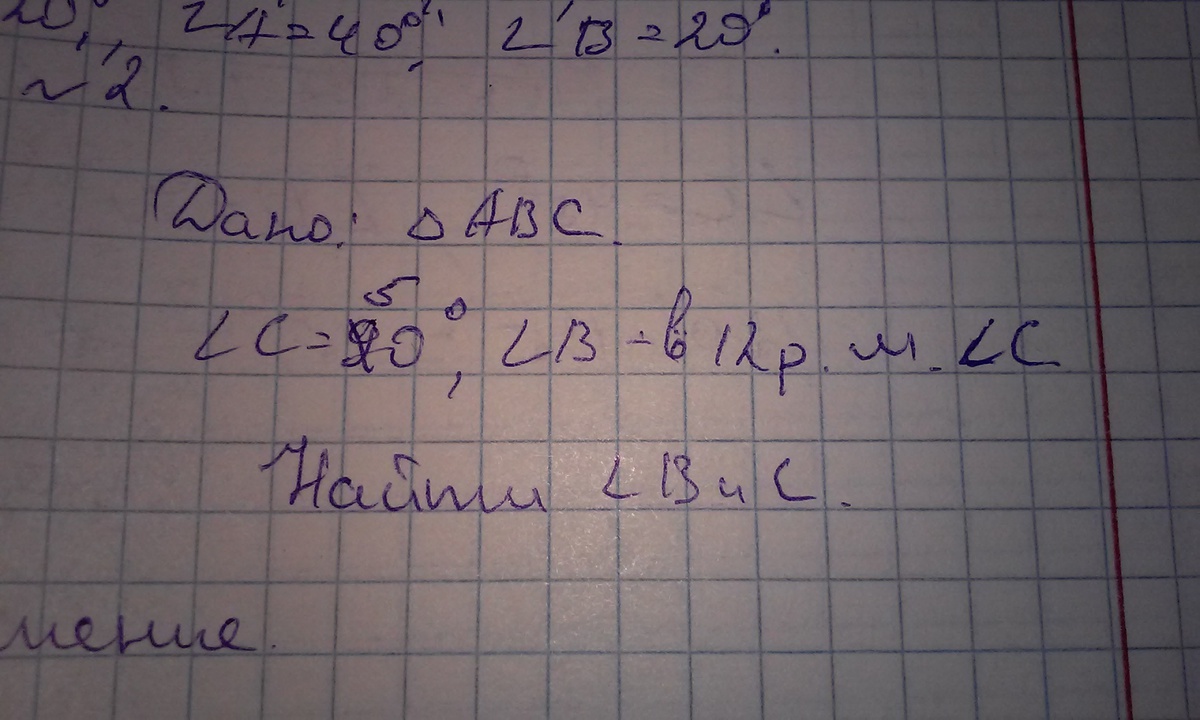 20°, ∠A = 40°, ∠B = 20°.
~2.
Дано: △ABC.
5
∠C = 90°, ∠B - в 12 р. м. ∠C
Найти ∠B и C.
шение.